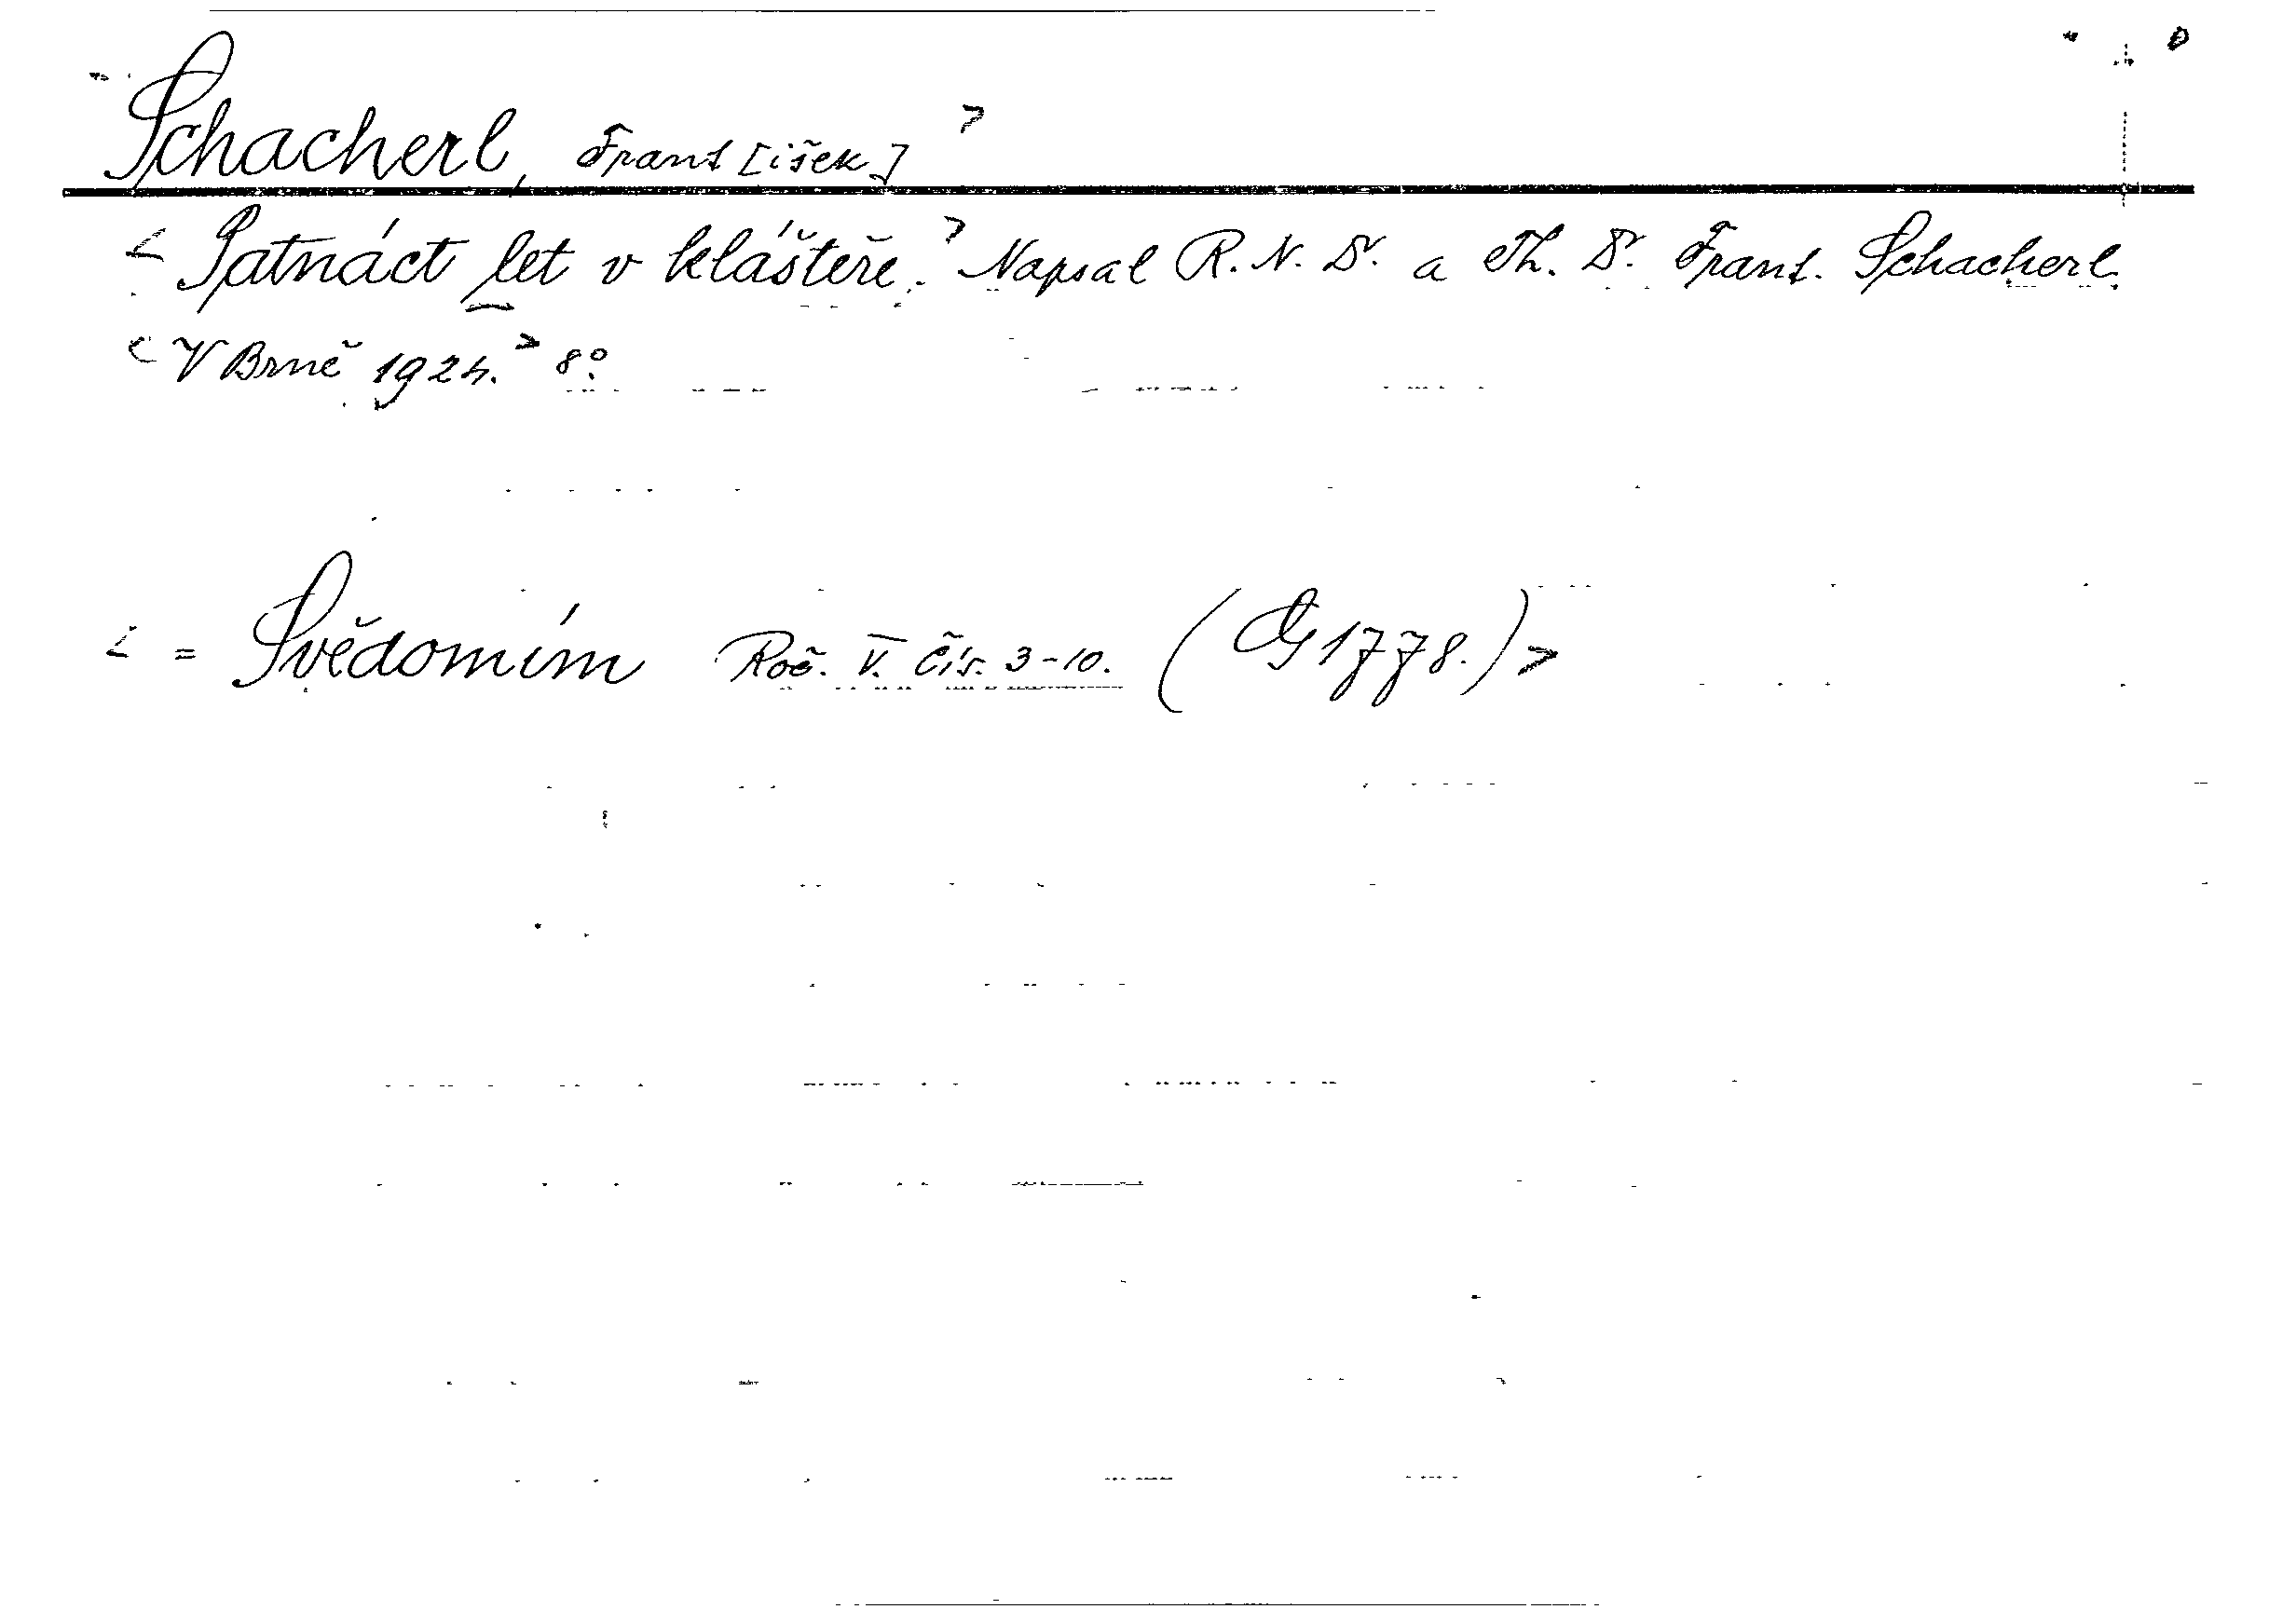 Schacherl, Frant[išek] >
< Patnáct let v klášteře. > Napsal R. N. Dr. a Th. Dr. Frant. Schacherl.
< V Brně 1924. > 8°.
< = Svědomím Roč. V. Čís. 3-10. (G 1778.) >